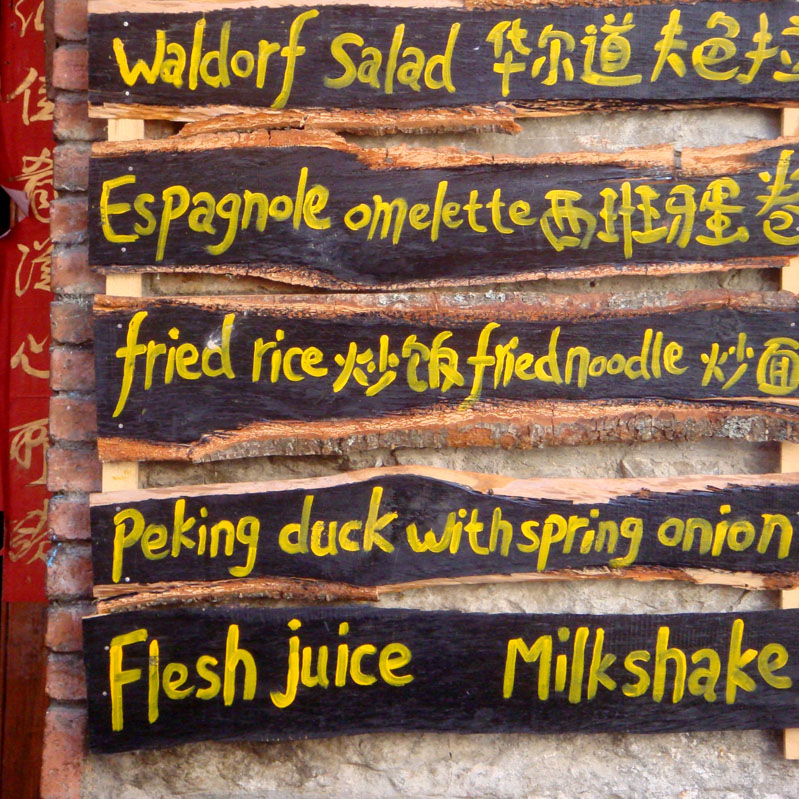 Waldorf Salad 华尔道夫色拉
Espagnole omelette 西班牙蛋卷
fried rice 炒饭 fried noodle 炒面
Peking duck with spring onion
Flesh juice Milkshake